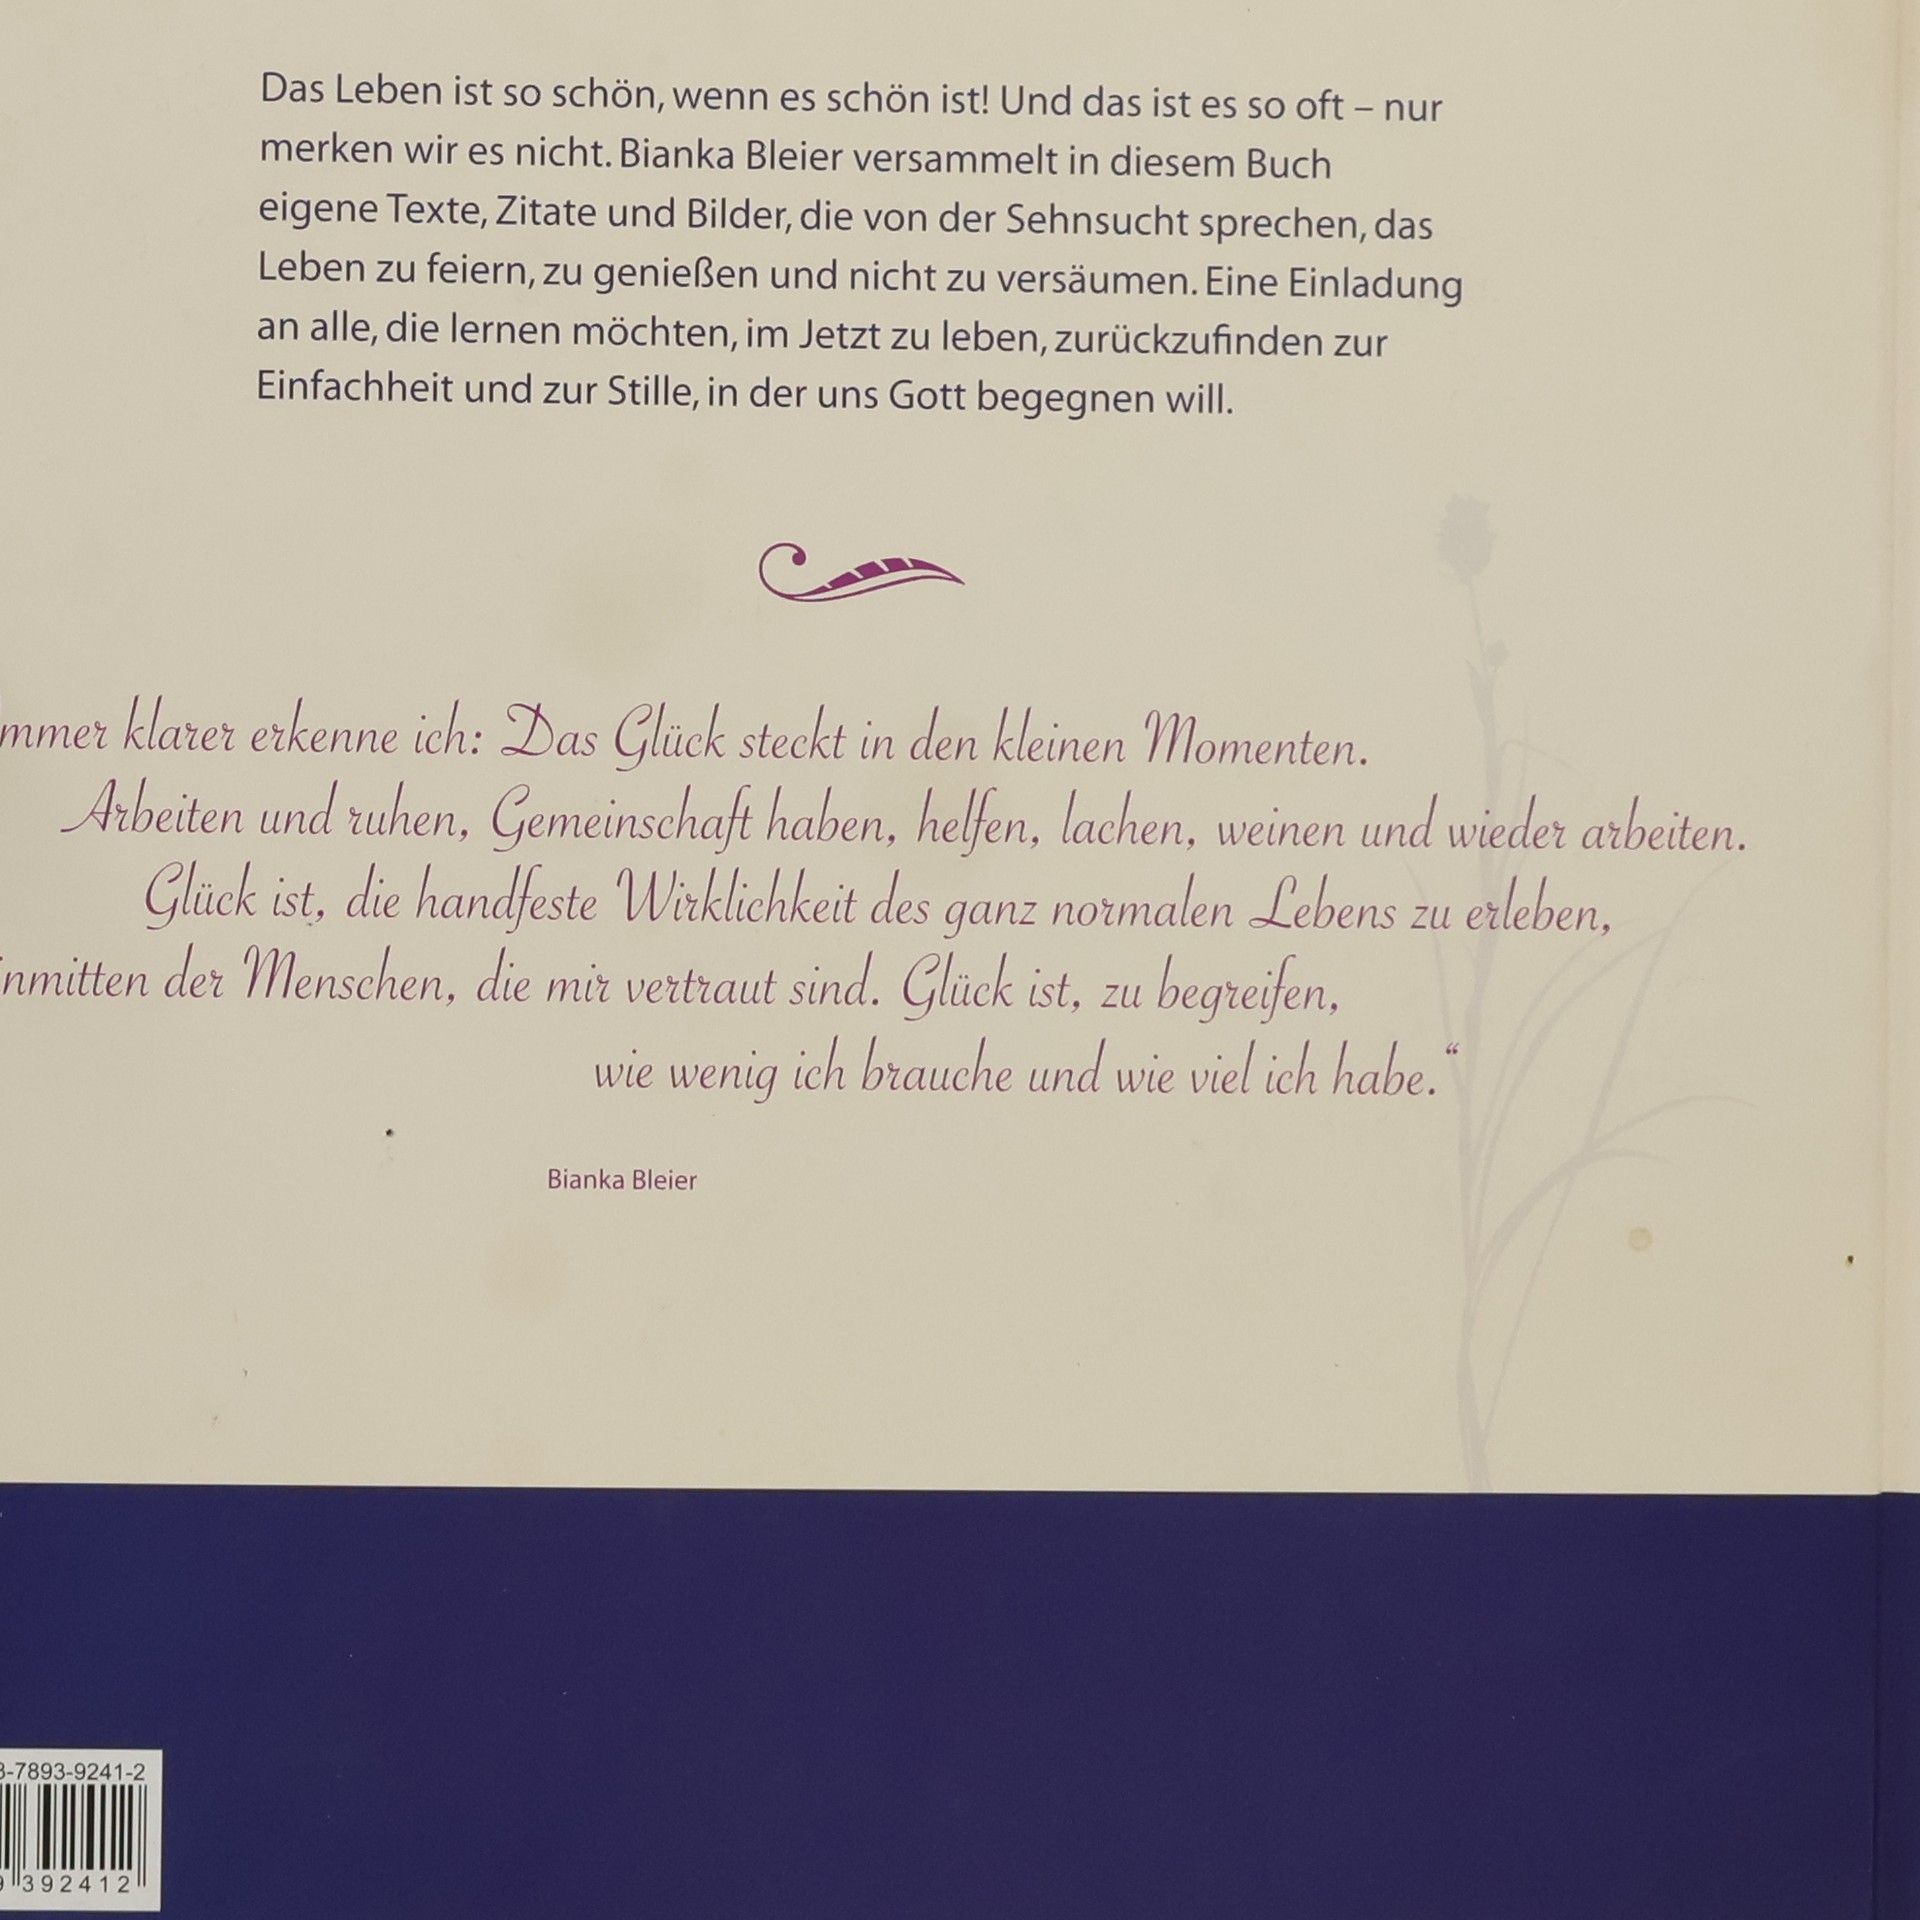 Das Leben ist so schön, wenn es schön ist! Und das ist es so oft – nur
merken wir es nicht. Bianka Bleier versammelt in diesem Buch
eigene Texte, Zitate und Bilder, die von der Sehnsucht sprechen, das
Leben zu feiern, zu genießen und nicht zu versäumen. Eine Einladung
an alle, die lernen möchten, im Jetzt zu leben, zurückzufinden zur
Einfachheit und zur Stille, in der uns Gott begegnen will.
mmer klarer erkenne ich: Das Glück steckt in den kleinen Momenten.
Arbeiten und ruhen, Gemeinschaft haben, helfen, lachen, weinen und wieder arbeiten.
Glück ist, die handfeste Wirklichkeit des ganz normalen Lebens zu erleben,
inmitten der Menschen, die mir vertraut sind. Glück ist, zu begreifen,
wie wenig ich brauche und wie viel ich habe.“
Bianka Bleier
3-7893-9241-2
9 392412